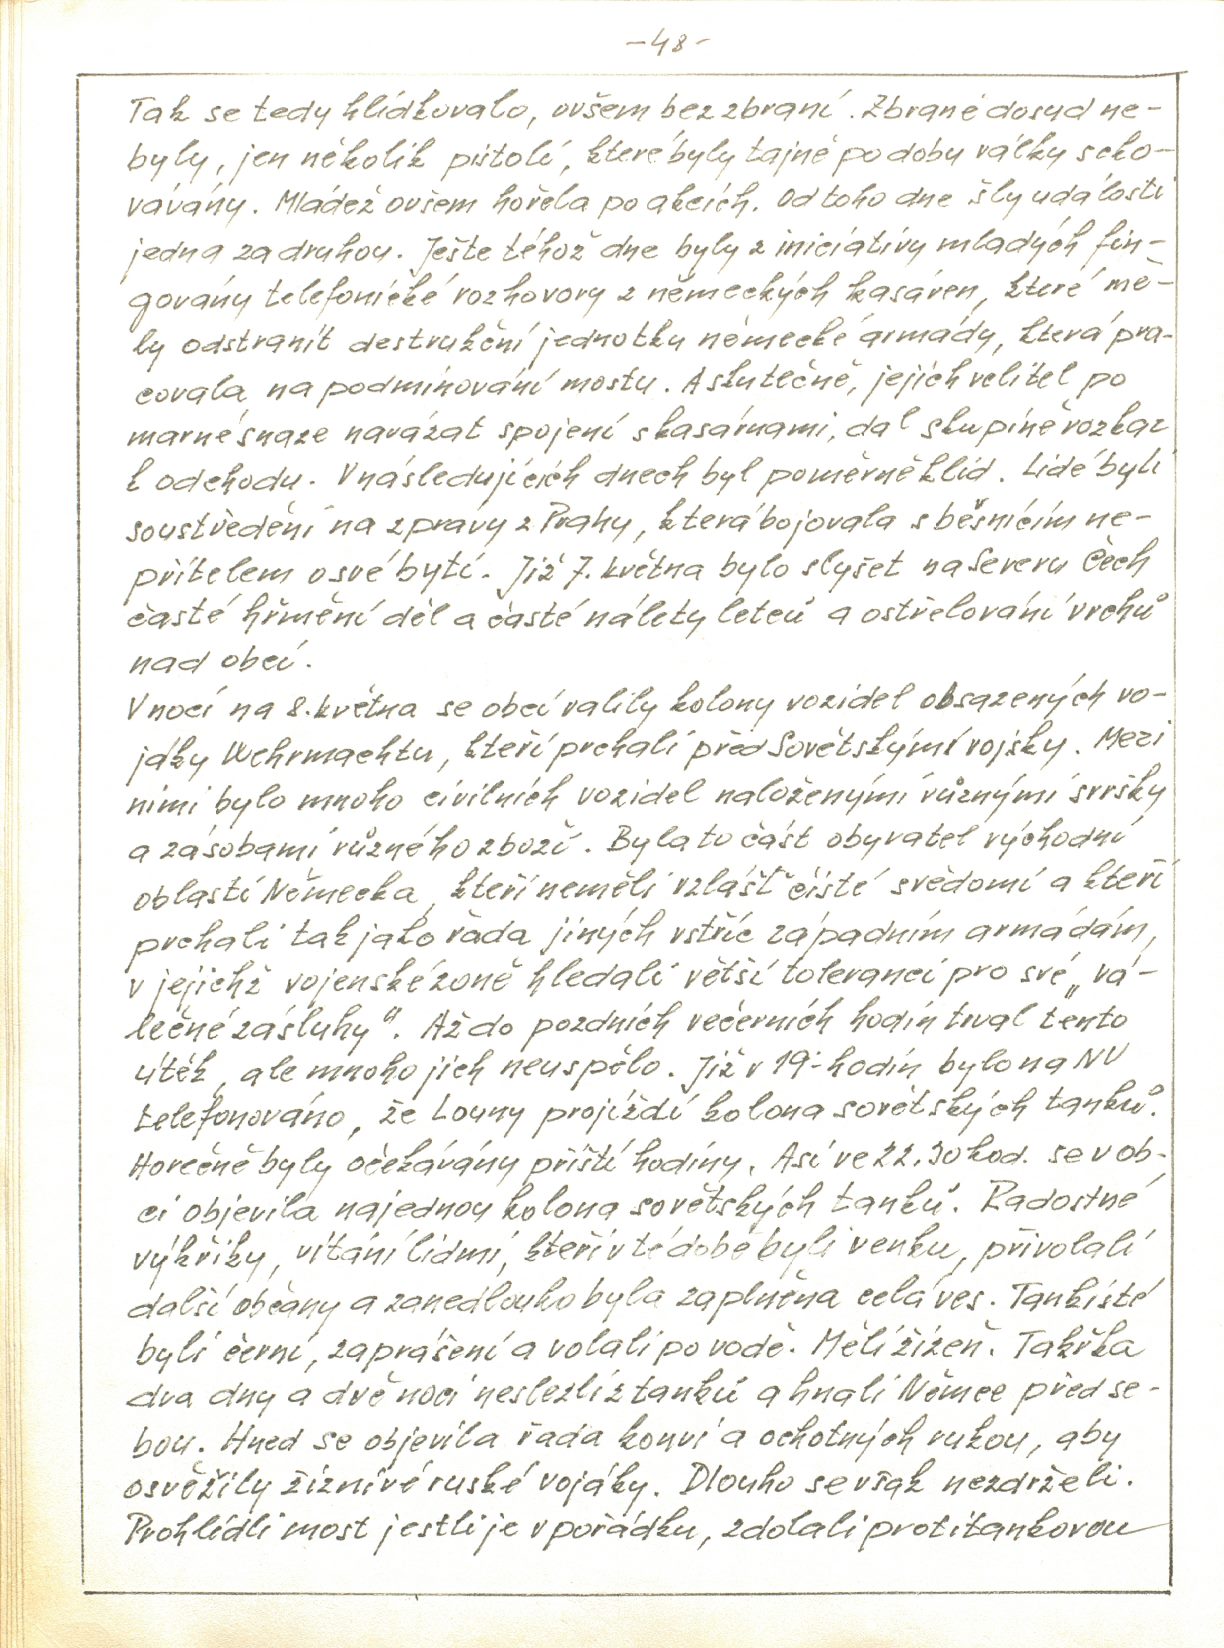 -48-
Tak se tedy hlídkovalo, ovšem bez zbraní. Zbraně dosud ne-
byly, jen několik pistolí, které byly tajně po dobu války scho-
vávány. Mládež ovšem hořela po akcích. Od toho dne šly události
jedna za druhou. Ješte téhož dne byly z iniciativy mladých fin-
govány telefonické rozhovory z německých kasáren, které mě-
ly odstranit destrukční jednotku německé armády, která pra-
covala na podminování mostu. A skutečně, jejich velitel po
marné snaze navázat spojení s kasárnami, dal skupině rozkaz
k odchodu. V následujících dnech byl poměrně klid. Lidé byli
soustředěni na zprávy z Prahy, která bojovala s běsnícím ne-
přítelem o své bytí. Již 7. května bylo slyšet na Severu Čech
časté hřmění děl a časté nálety letců a ostřelování vrchů
nad obcí.
V noci na 8. května se obcí valily kolony vozidel obsazených vo-
jáky Wehrmachtu, kteří prchali před Sovětskými vojsky. Mezi
nimi bylo mnoho civilních vozidel naloženými různými svršky
a zásobami různého zboží. Byla to část obyvatel východní
oblasti Německa, kteří neměli vzlášť čisté svědomí a kteří
prchali tak jako řada jiných vstříc západním armádám,
v jejichž vojenské zoně hledali větší toleranci pro své „vá-
lečné zásluhy". Až do pozdních večerních hodin trval tento
útěk, ale mnoho jich neuspělo. Již v 19.- hodin bylo na NV
telefonováno, že Louny projíždí kolona sovětských tanků.
Horečně byly očekávány příští hodiny. Asi ve 22.30 hod. se v ob-
ci objevila najednou kolona sovětských tanků. Radostné
výkřiky, vítání lidmi, kteří v té době byli venku, přivolali
další občany a zanedlouho byla zaplněna celá ves. Tankisté
byli černí, zaprášení a volali po vodě. Měli žízeň. Takřka
dva dny a dvě noci neslezli z tanků a hnali Němce před se-
bou. Hned se objevila řada konví a ochotných rukou, aby
osvěžily žíznivé ruské vojáky. Dlouho se však nezdrželi.
Prohlídli most jestli je v pořádku, zdolali protitankovou